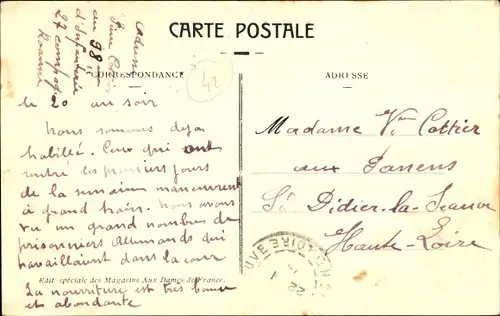 CARTE POSTALE
Adresse
au 98
d'Infanterie
27 compag
Roanne
42
CORRESPONDANCE
ADRESSE
le 20 au soir
Nous sommes deja
habillé. Ceux qui ont
rentré les premiers jours
de la semain maneuvrent
à grand train. Nous avons
vu un grand nombre de
prisonniers Allemands qui
travaillaient dans la cour
Edit spéciale des Magasins Aux Dames de France.
La nourriture est très bonne
et abondante
Madame Vve Cottier
aux
St Didier-la-Seauve
Haute-Loire